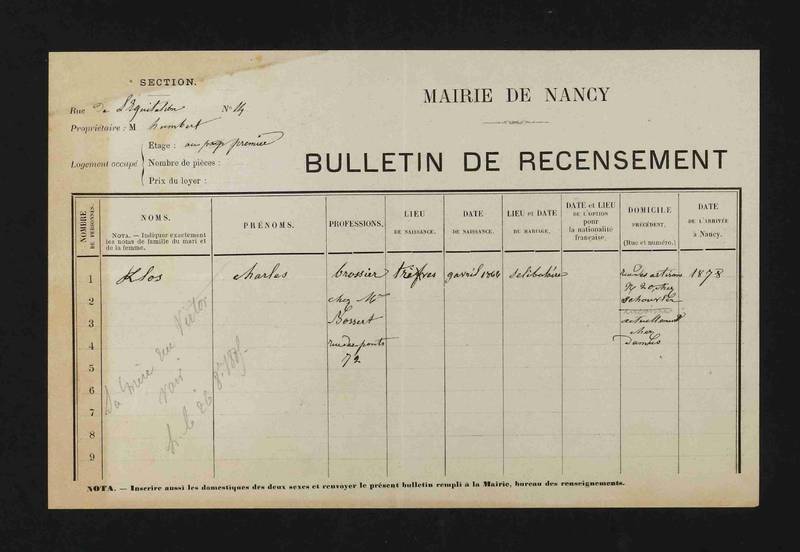 SECTION.
Rue de L'Equitation No 14
Propriétaire : M humbert
MAIRIE DE NANCY
Logement occupé
Etage : au premier
Nombre de pièces :
Prix du loyer :
BULLETIN DE RECENSEMENT
NOMBRE DE PERSONNES.
NOMS.
NOTA. — Indiquer exactement
les noms de famille du mari et
de la femme.
PRÉNOMS.
PROFESSIONS.
LIEU
DE NAISSANCE.
DATE
DE NAISSANCE.
LIEU et DATE
DU MARIAGE.
DATE et LIEU
DE L'OPTION
pour
la nationalité
française.
DOMICILE
PRÉCÉDENT.
(Rue et numéro.)
DATE
DE L'ARRIVÉE
à Nancy.
1 Klos charles brossier trèves 9 avril 1864 selibatère rue des artisans 1878
2 chez Mr No 20 chez
schourter
3 Bossert actuellement
chez
4 rue des ponts
5 72
6
7
8
9
Sa mère rue Victor
NOTA. — Inscrire aussi les domestiques des deux sexes et renvoyer le présent bulletin rempli à la Mairie, bureau des renseignements.